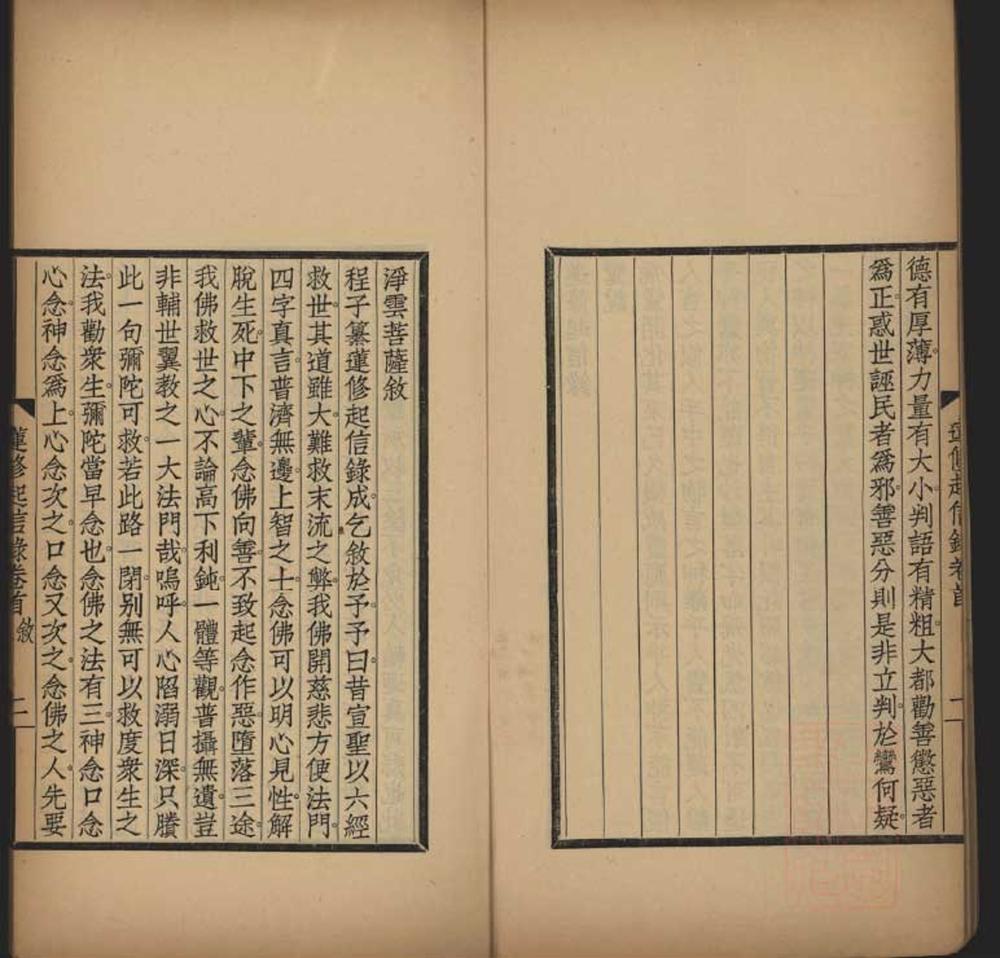 德有厚薄力量有大小判語有精粗大都勸善懲惡者
爲正惑世誣民者爲邪善惡分則是非立判於鸞何疑
蓮修起信錄卷首
二
淨雲菩薩敘
程子纂蓮修起信錄成乞敘於予予曰昔宣聖以六經
救世其道雖大難救末流之弊我佛開慈悲方便法門
四字真言普濟無邊上智之士念佛可以明心見性解
脫生死中下之輩念佛向善不致起念作惡墮落三途
我佛救世之心不論高下利鈍一體等觀普攝無遺豈
非輔世翼教之一大法門哉嗚呼人心陷溺日深只賸
此一句彌陀可救若此路一閉别無可以救度衆生之
法我勸衆生彌陀當早念也念佛之法有三神念口念
心念神念爲上心念次之口念又次之念佛之人先要
蓮修起信錄卷首 敘